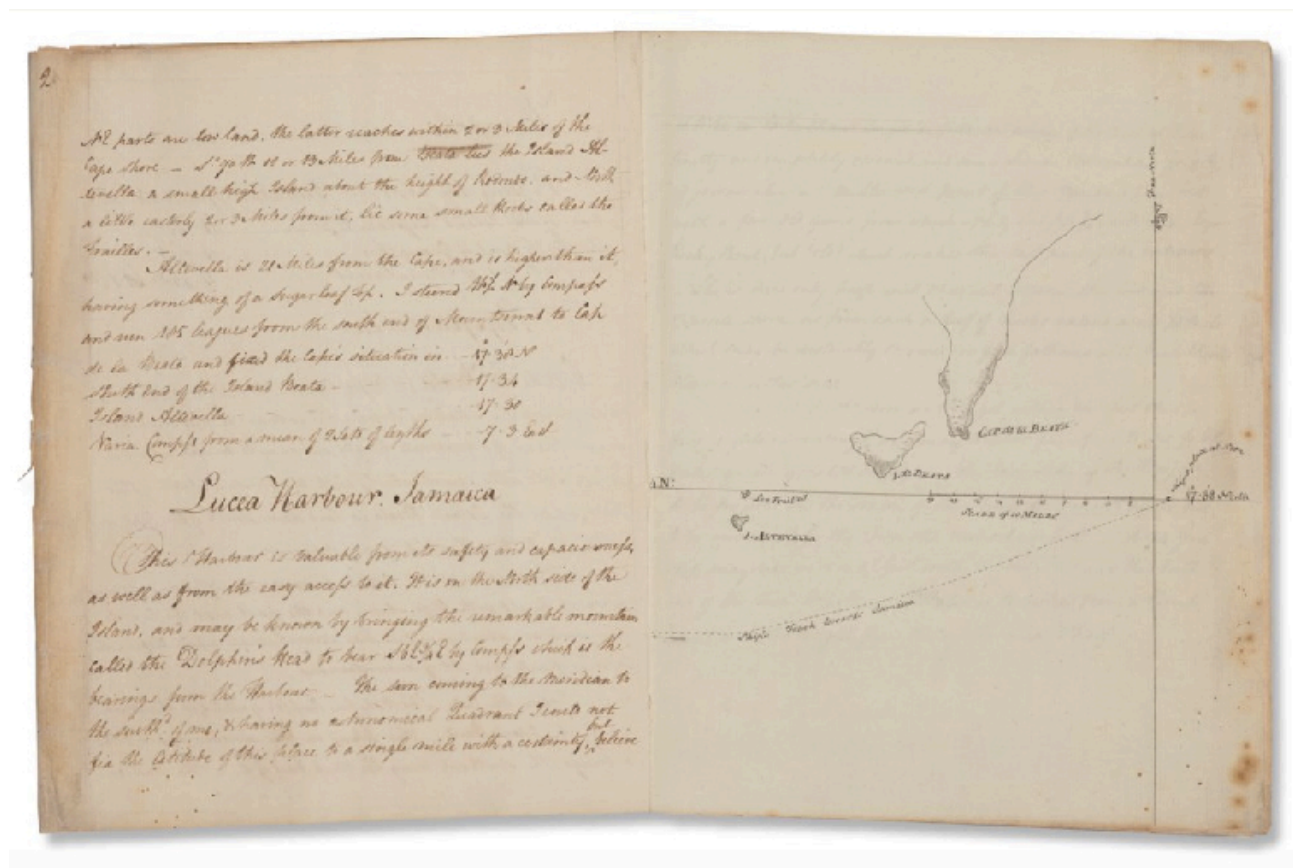 2
NE parts are low land, the latter reaches within 2 or 3 Miles of the
Cape shore — 12 or 13 Miles from Beata lies the Island Al-
tavella a small high Island about the height of Redondo, and North
a little easterly 2 or 3 Miles from it, lie some small Rocks called the
Frailles. —
Altavella is 21 Miles from the Cape, and is higher than it,
having something of a Sugar loaf top. I steered by Compass
and run 185 leagues from the south end of Mountserrat to Cape
de la Beata and fixed the Cape's situation in - 17°.38 N
South End of the Island Beata - 17.34
Island Altavella - 17.30
Varia. Compss from a mean of 2 sets of 7.3 East
Lucea Harbour. Jamaica
This Harbour is valuable from its safety and capaciousness,
as well as from the easy access to it. It is on the North side of the
Island, and may be known by bringing the remarkable mountain
called the Dolphin's Head to bear by Compss which is the
bearings from the Harbour — The sun coming to the Meridian to
the south.d of me, & having no astronomical Quadrant I could not
fix the Latitude of this place to a single mile with a certainty, but believe
CAPE DE LA BEATA
LA BEATA
AN:
Los Frailes
SCALE of 10 MILES
Ships place at Noon
ALTAVELLA
Ships Track towards Jamaica